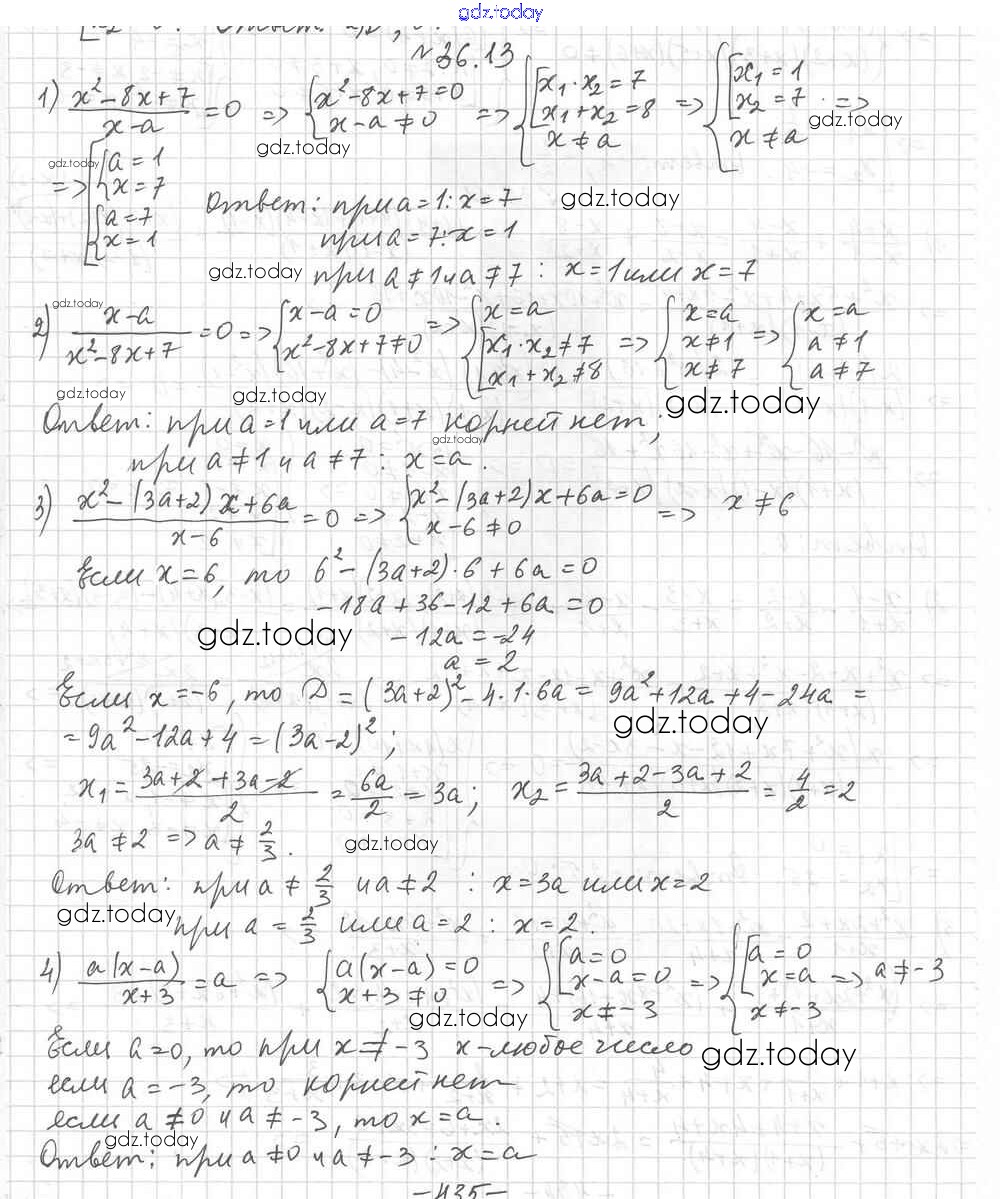 gdz.today
№36.13
1) (x²-8x+7)/(x-a) = 0 => {x²-8x+7=0; x-a≠0 => {[x₁·x₂=7; x₁+x₂=8; x≠a => {[x₁=1; x₂=7; x≠a =>
gdz.today
gdz.today
gdz.today
=> [{a=1; x=7; {a=7; x=1
Ответ: при a=1: x=7
gdz.today
при a=7: x=1
gdz.today
при a≠1 и a≠7: x=1 или x=7
gdz.today
2) (x-a)/(x²-8x+7) = 0 => {x-a=0; x²-8x+7≠0 => {x=a; [x₁·x₂≠7; x₁+x₂≠8 => {x=a; x≠1; x≠7 => {x=a; a≠1; a≠7
gdz.today
gdz.today
gdz.today
Ответ: при a=1 или a=7 корней нет;
gdz.today
при a≠1 и a≠7: x=a.
3) (x²-(3a+2)x+6a)/(x-6) = 0 => {x²-(3a+2)x+6a=0; x-6≠0 => x≠6
Если x=6, то 6²-(3a+2)·6+6a=0
-18a+36-12+6a=0
gdz.today
-12a=-24
a=2
Если x=-6, то D=(3a+2)²-4·1·6a=9a²+12a+4-24a=
gdz.today
=9a²-12a+4=(3a-2)²;
x₁=(3a+2+3a-2)/2=6a/2=3a; x₂=(3a+2-3a+2)/2=4/2=2
3a≠2 => a≠2/3.
gdz.today
Ответ: при a≠2/3 и a≠2: x=3a или x=2
gdz.today
при a=2/3 или a=2: x=2.
4) a(x-a)/(x+3)=a => {a(x-a)=0; x+3≠0 => {[a=0; x-a=0; x≠-3 => {[a=0; x=a; x≠-3 => a≠-3
gdz.today
Если a=0, то при x≠-3 x-любое число
gdz.today
если a=-3, то корней нет
если a≠0 и a≠-3, то x=a.
gdz.today
Ответ: при a≠0 и a≠-3: x=a
-435-